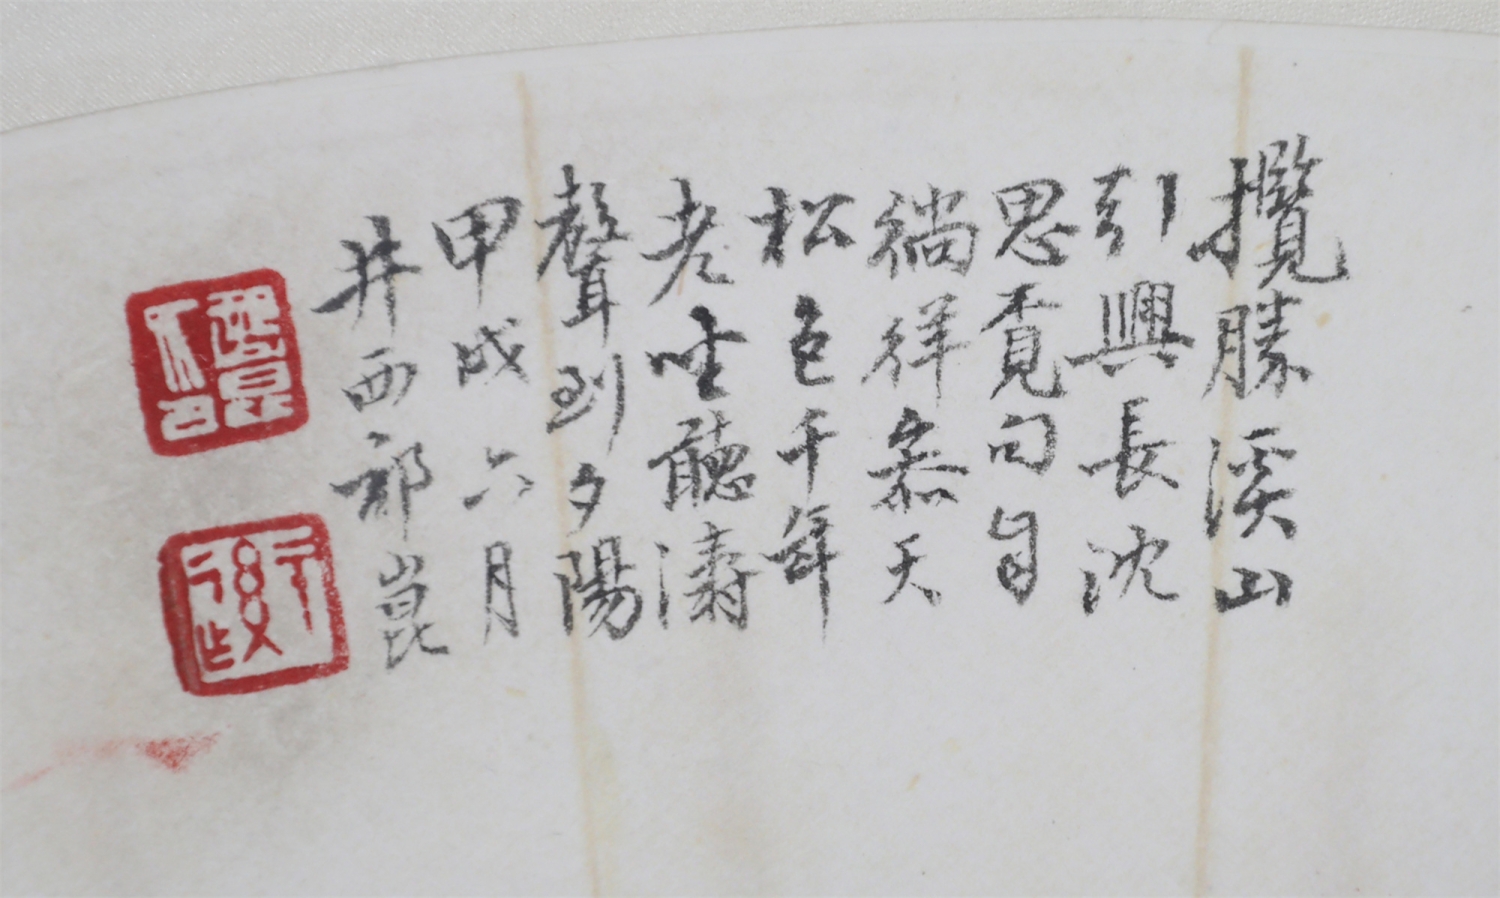 攬勝溪山
引興長沈
思覔句自
徜徉叅天
松色千年
老坐聽濤
聲到夕陽
甲戌六月
井西祁崑